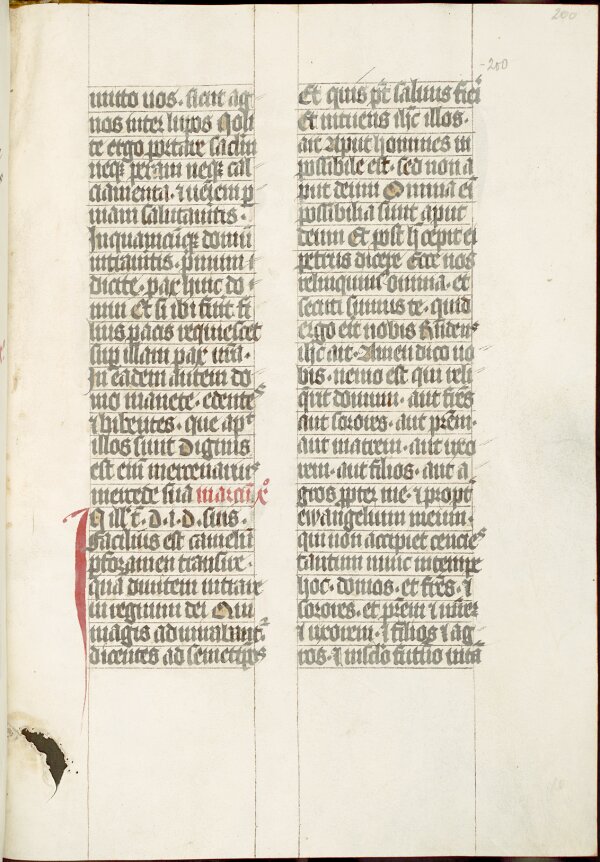 200
-200
mitto uos. sicut ag
nos inter lupos Noli
te ergo portare saclū
neq; peram neq; cal
ciamenta. ⁊ neīem p
uiam salutaūitis.
In quācūq; domū
intraūitis. pimum
dicite. pax huic do
mui Et si ibi fuīt fi
lius pacis requiescet
sup illam pax ur̄a.
In eadem autem do
mo manete. edentes
⁊ bibentes. que ap
illos sunt Dignus
est em̄ mercenarius
mercede sua marcū x
In ill t̄. d. i. d. suis.
Facilius est camelū
p foramen transire.
quā diuitem intrare
in regnum dei Qui
magis admirabant̄
dicentes ad semetipos
Et quis pt̄ saluus fieī
Et intuens ih̄c illos.
ait Aput homines in
possibile est. sed non a
put deum Omnia eī
possibilia sunt aput
deum Et post h̄ cepit ei
petrus dicere Ecce nos
reliquim omnia. et
secuti sumus te. quid
ergo erit nobis R̄ndens
ih̄c ait. Amen dico uo
bis. nemo est qui reli
qrit domum. aut frēs
aut sorores. aut prēm.
aut matrem. aut uxo
rem. aut filios. aut a
gros ppter me. ⁊ propt
ewangelium meum.
qui non accipiet centies
tantum nunc in tempe
hoc. domos. et frēs. ⁊
sorores. et prēm ⁊ mrēr
⁊ uxorem. ⁊ filios ⁊ ag
ros. ⁊ in sclo futūo uitā